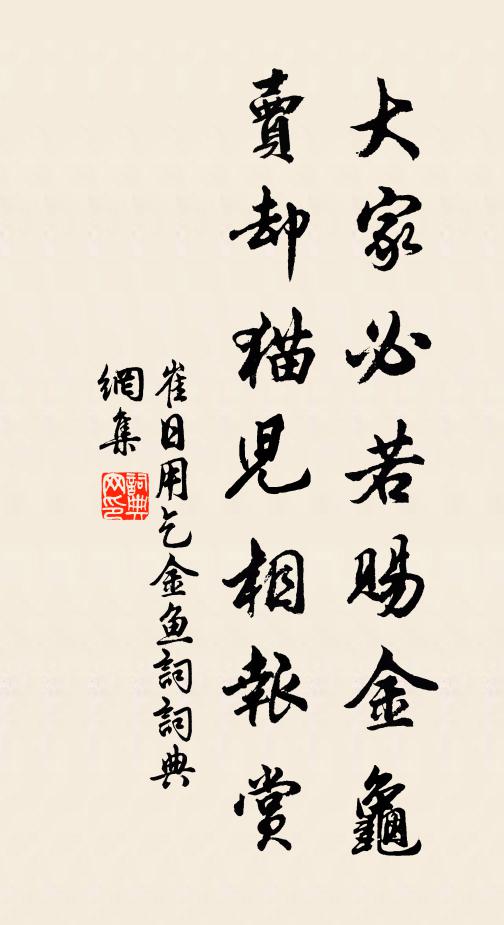 大家必若賜金龜
賣却猫児相報賞
崔日用乞金魚詞詞典
網集
詞典
网印